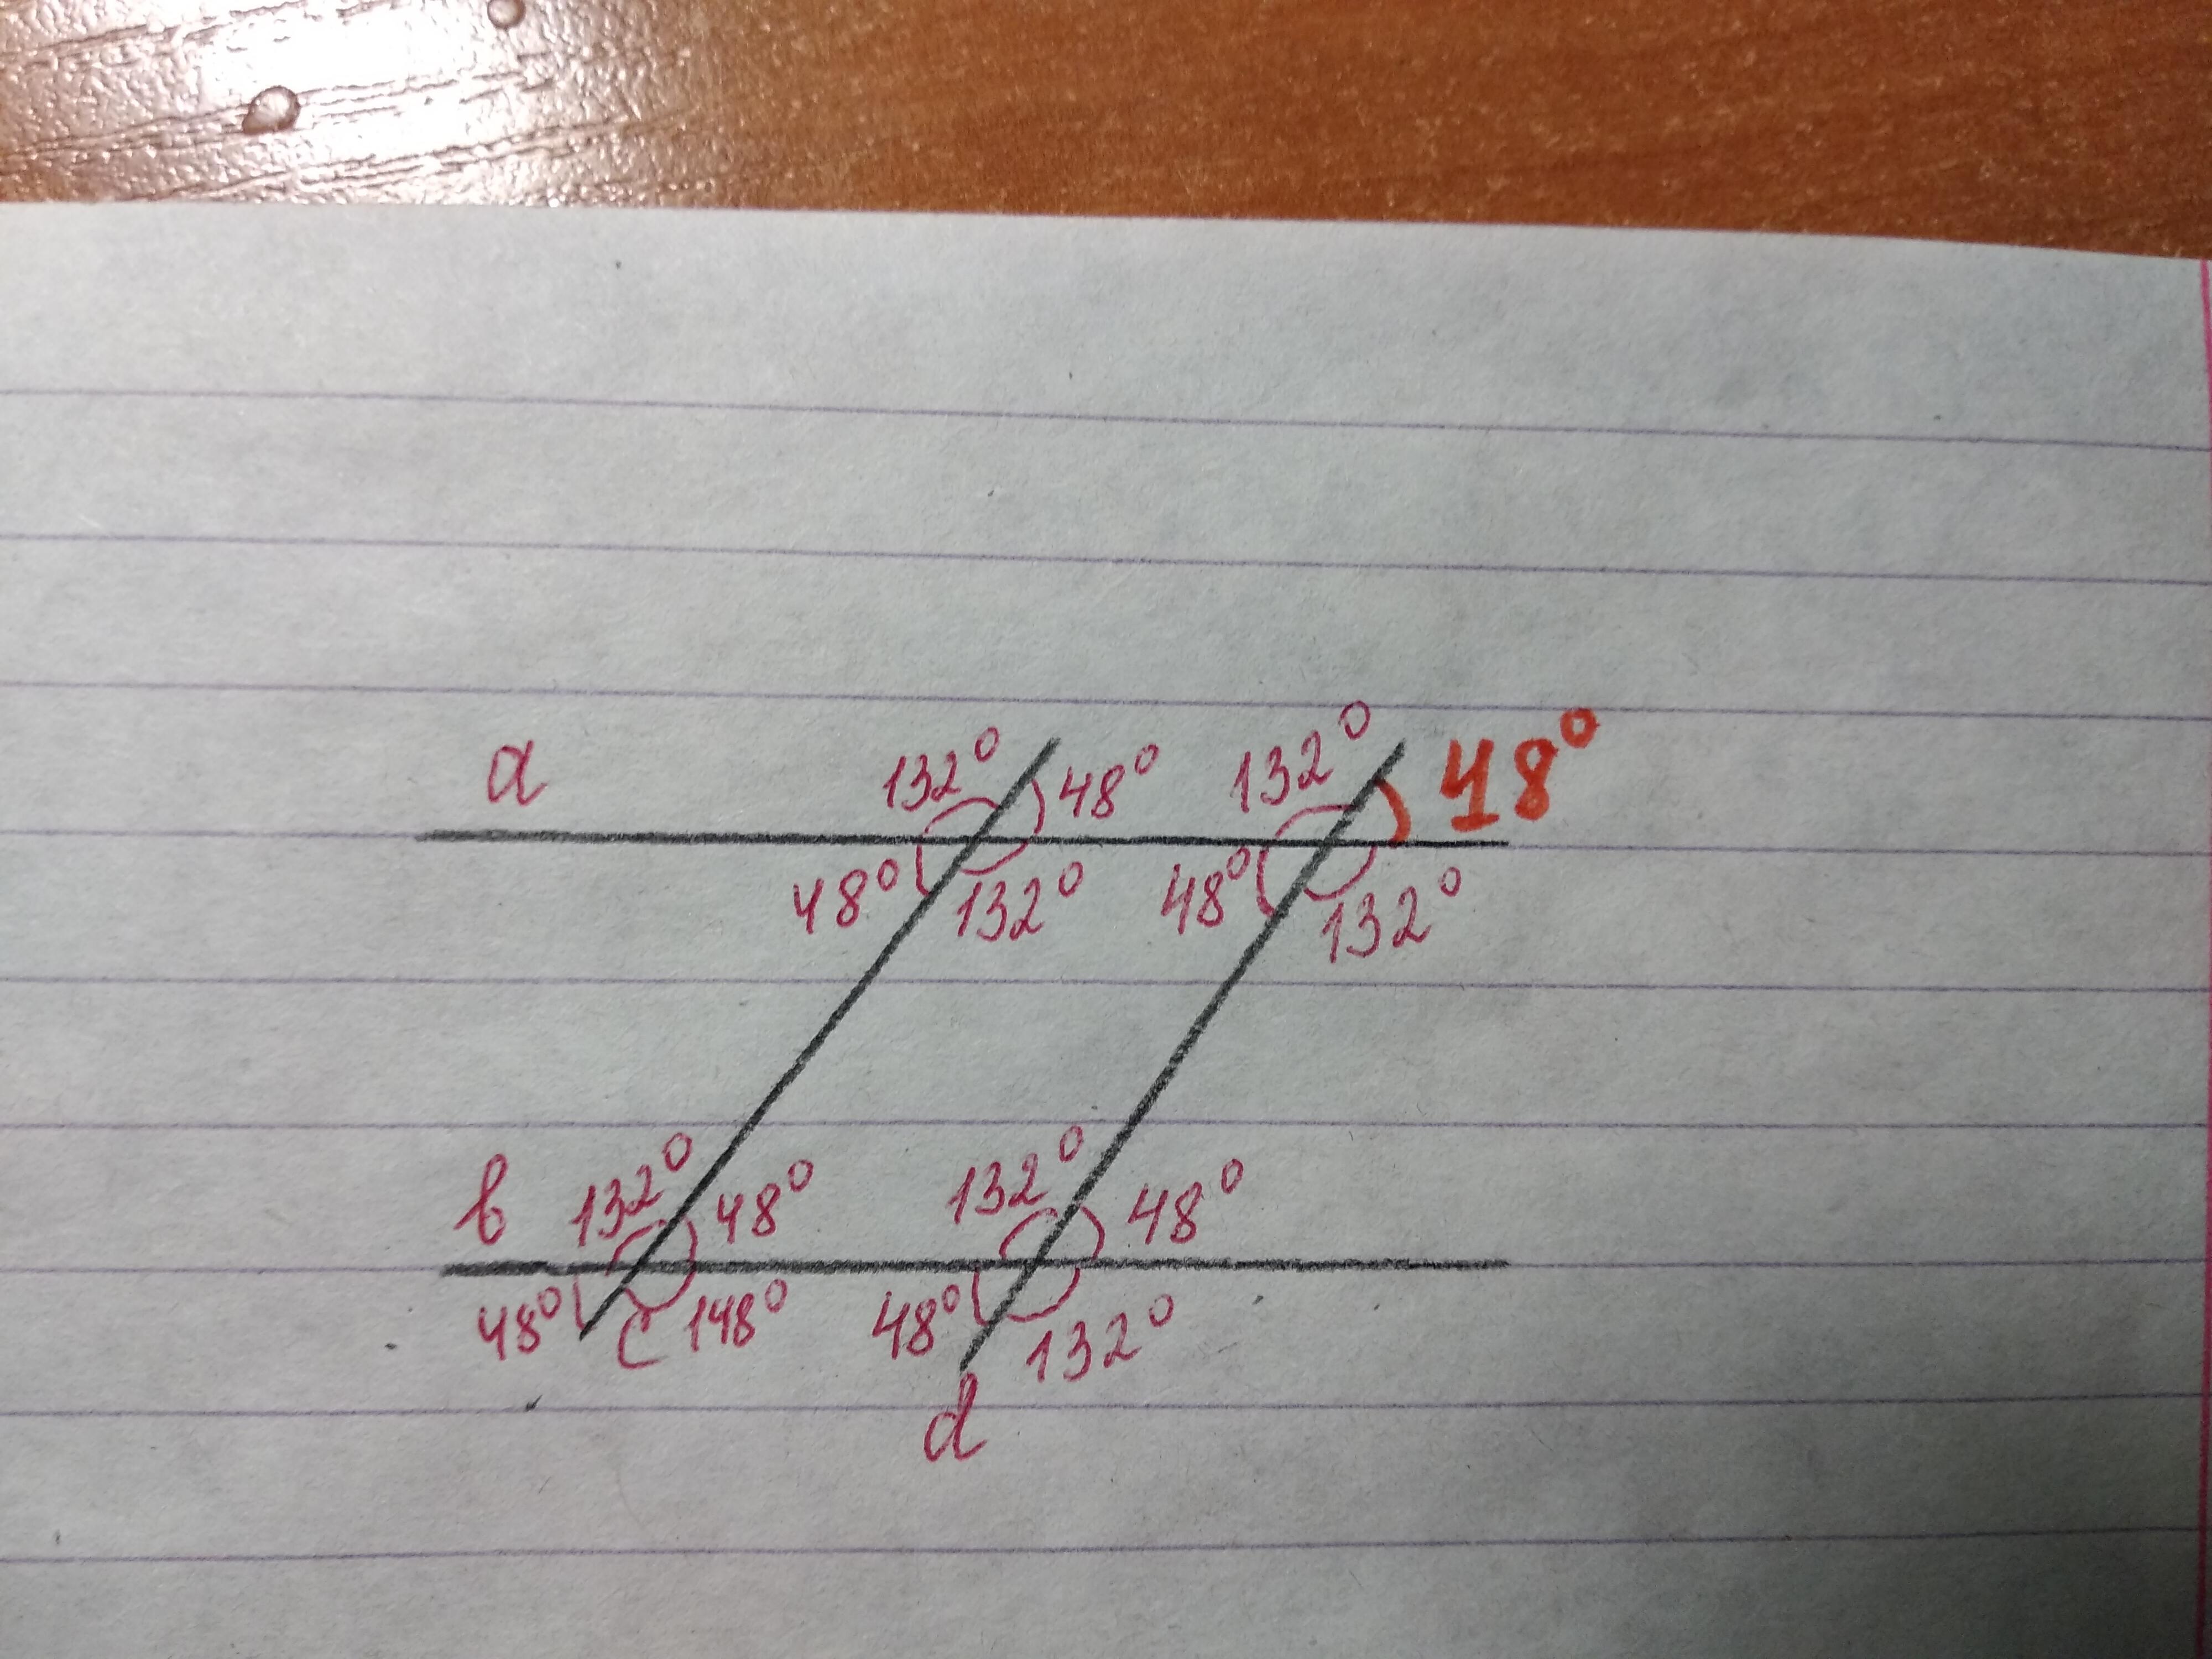 132° 48° 132° 48°
a
48° 132° 48° 132°
в 132° 48° 132° 48°
48° c 148° 48° 132°
d